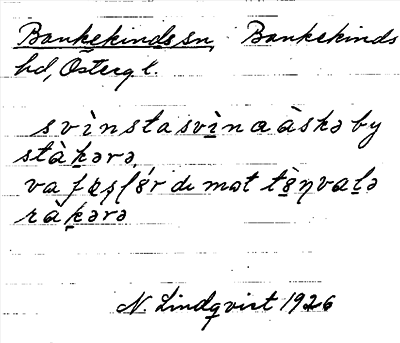 Bankekinds sn, Bankekinds
hd, Östergötl.
svìnstasvìnaàskə by
stàkərə,
va føʂʃǿr du mət tø̀ŋvalə
ràkərə
N. Lindqvist 1926